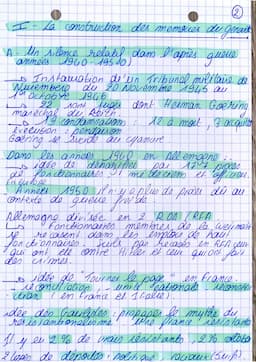 2
I - La construction des mémoires du génocide
A. Un silence relatif dans l'après guerre
(années 1940 - 1950)
→ Instauration d'un Tribunal militaire de
Nuremberg du 20 novembre 1945 au
1er octobre 1946
→ 22 sont jugés dont Herman Goering
maréchal du Reich
→ 19 condamnation : 12 à mort, 7 acquittés
exécution : pendaison
Goering se suicide au cyanure
Dans les années 1940 en Allemagne :
→ idée de dénazifier par
de fonctionnaires et médecin et
Années 1950 il n'y a plus de procès dû au
contexte de guerre froide
Allemagne divisée en 2 RDA / RFA
→ Fonctionnaires membres de la
se dans les emplois de haut
fonctionnaires. Juifs pas en RFA
qui ont été contre Hitler et ceux qui ont fait
des crimes.
→ idée de "Tourner la page" en France :
réconciliation, unité nationale
(en France et Italie)
idée des Gaullistes : propager le mythe du
résistancialisme France résistante
Il y eu 2% de vrais résistants, 2%
2 types de déportés : politique, raciaux